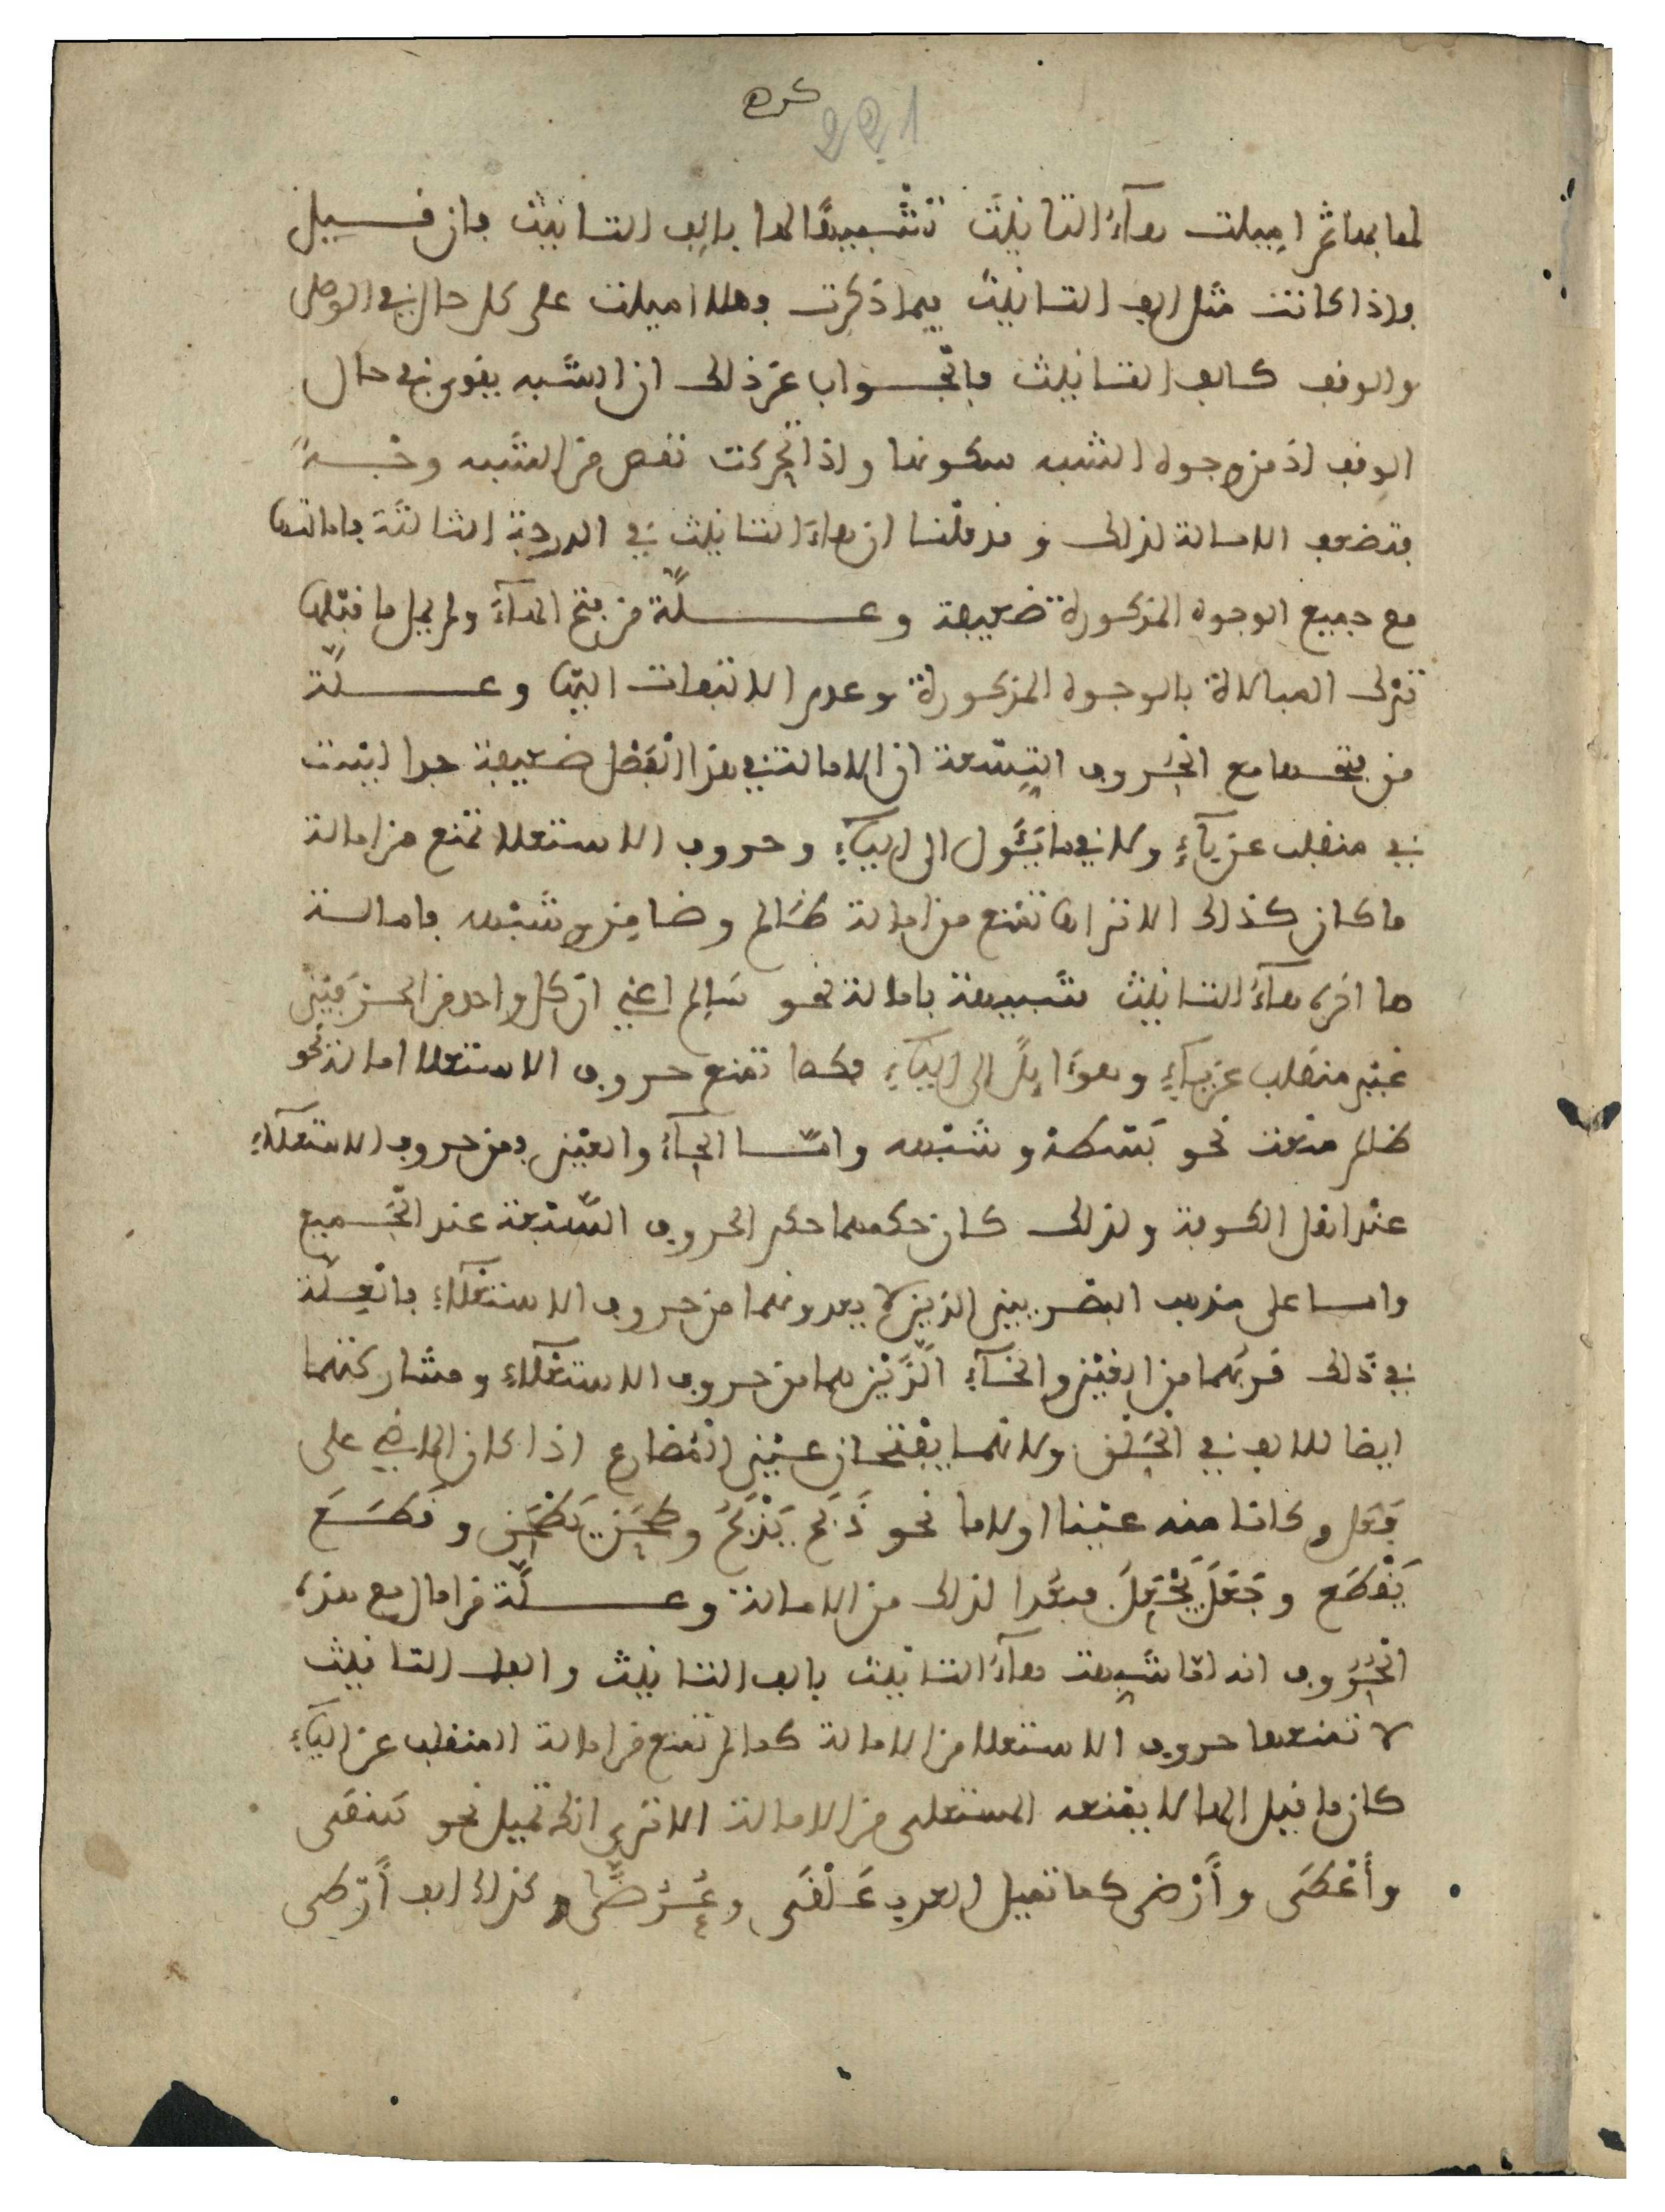 كره
221
لها بها ثم اميلت هآء التانيث تشبيها لها بالف التانيث فان قيل
واذا كانت مثل الف التانيث فيما ذكرت فهلا اميلت على كل حال في الوصل
والوقف كالف التانيث فالجواب عن ذلك ان الشبه يقوى في حال
الوقف اذ من وجوه الشبه سكونها واذا تحركت نقص من الشبه وجه
فتضعف الامالة لذلك وقد قلنا ان هاء التانيث في الدرجة الثالثة فامالتها
مع جميع الوجوه المذكورة ضعيفة وعلّة من فتح الهآء ولم يمل ما قبلها
ترك المبالاة بالوجوه المذكورة وعدم الالتفات اليها وعلّة
من فتحها مع الحروف التسعة ان الامالة في هذا الفصل ضعيفة جدا ليست
في منقلب عن يآء ولا في ما يَئُول الى اليآء وحروف الاستعلا تمنع من امالة
ما كان كذلك الا ترى انها تمنع من امالة ظالم وضامن وشبهه فامالة
ما اخره هآء التانيث شبيهة بامالة نحو سالم اعني ان كل واحد من الحرفين
غير منقلب عن يآء وهو آيل الى اليآء فكما تمنع حروف الاستعلا امالة نحو
ظالم منعت نحو بَسْطة وشبهه وامّا الحآء والعين فمن حروف الاستعلآء
عند اهل الكوفة ولذلك كان حكمهما حكم الحروف السّبعة عند الجميع
واما على مذهب البصريين الذين لا يعدونهما من حروف الاستعلآء فالعلّة
في ذلك قربهما من الغين والخآء الَّذَيْن هما من حروف الاستعلآء ومشاركتهما
ايضا للالف في الحَلْق ولانهما يفتحان عين المُضارع اذا كان الماضي على
فَعَل وكانا منه عينا او لاما نحو ذَبَح يَذْبَحُ وطَحَنَ يَطْحَن وقَطَعَ
يَقْطَع وجَعَلَ يَجْعَلَ فبعُدا لذلك من الامالة وعلّة من امال مع هذه
الحُرُوف انه لمّا شَبِهت هآءُ التانيث بالف التانيث والف التانيث
لا تمنعها حروف الاستعلا من الامالة كما لم تمنع من امالة المنقلب عن اليآء
كان ما قبل الها لا يمنعه المستعلى من الامالة الا ترى انك تميل نحو تَبْقَى
وأَعْطَى وأَرْضى كما تميل العرب عَلْقَى وعُرُضَّى وكذلك الف أَرْطى